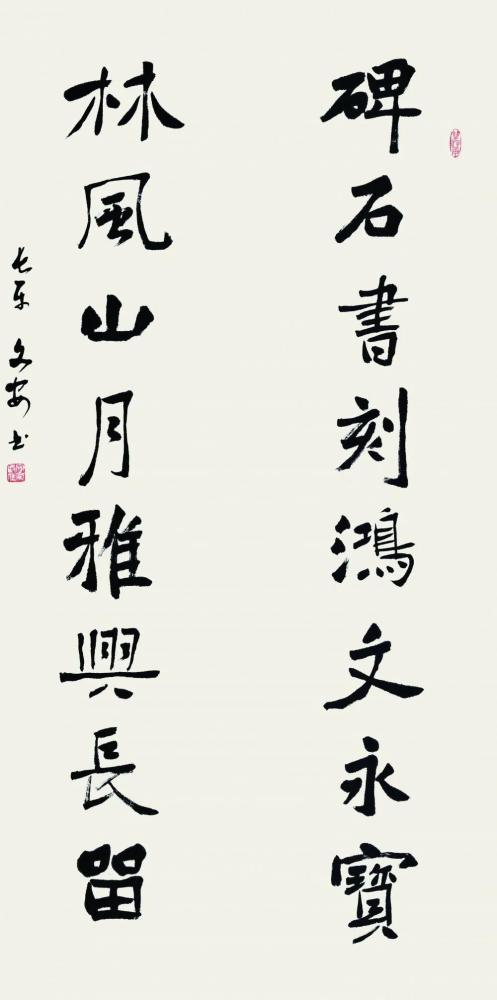 碑石書刻鴻文永寶
林風山月雅興長留
長平文安書